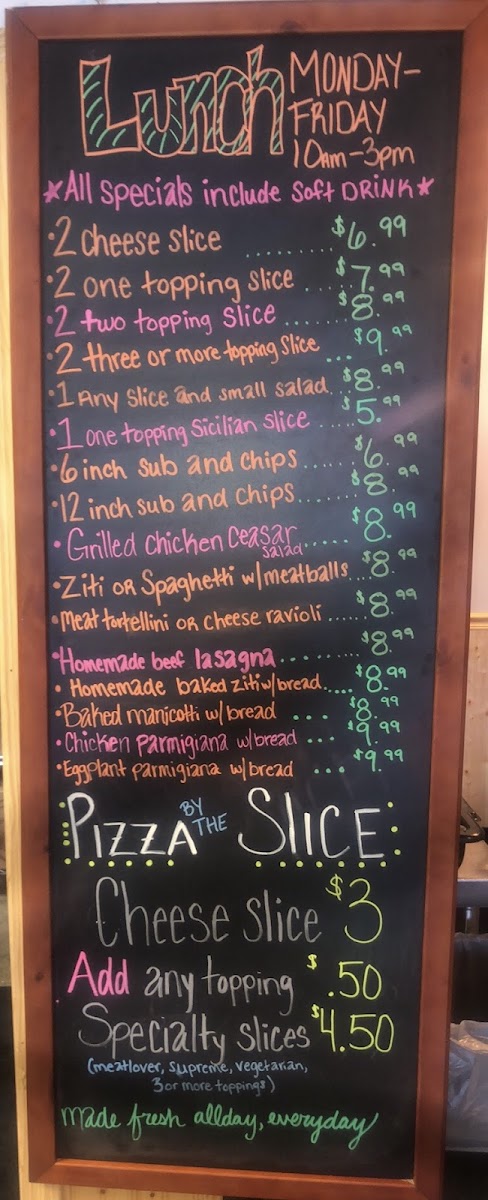 Lunch MONDAY-
FRIDAY
10am-3pm
*All Specials include Soft DRINK*
•2 Cheese slice ........ $6.99
•2 one topping slice .... $7.99
•2 two topping slice ...... $8.99
•2 three or more topping slice ... $9.99
•1 Any slice and small salad... $8.99
•1 one topping Sicilian slice ..... $5.99
•6 inch sub and chips ...... $6.99
•12 inch sub and chips...... $8.99
•Grilled Chicken Ceasar salad..... $8.99
•Ziti or Spaghetti w/meatballs.... $8.99
•Meat tortellini or cheese ravioli ..... $8.99
•Homemade beef lasagna ........ $8.99
•Homemade baked ziti w/bread.... $8.99
•Baked manicotti w/bread .... $8.99
•Chicken parmigiana w/bread ... $9.99
•Eggplant parmigiana w/bread ... $9.99
PIZZA BY THE SLICE
Cheese slice $3
Add any topping $.50
Specialty slices $4.50
(meatlover, supreme, vegetarian,
3 or more toppings)
made fresh allday, everyday